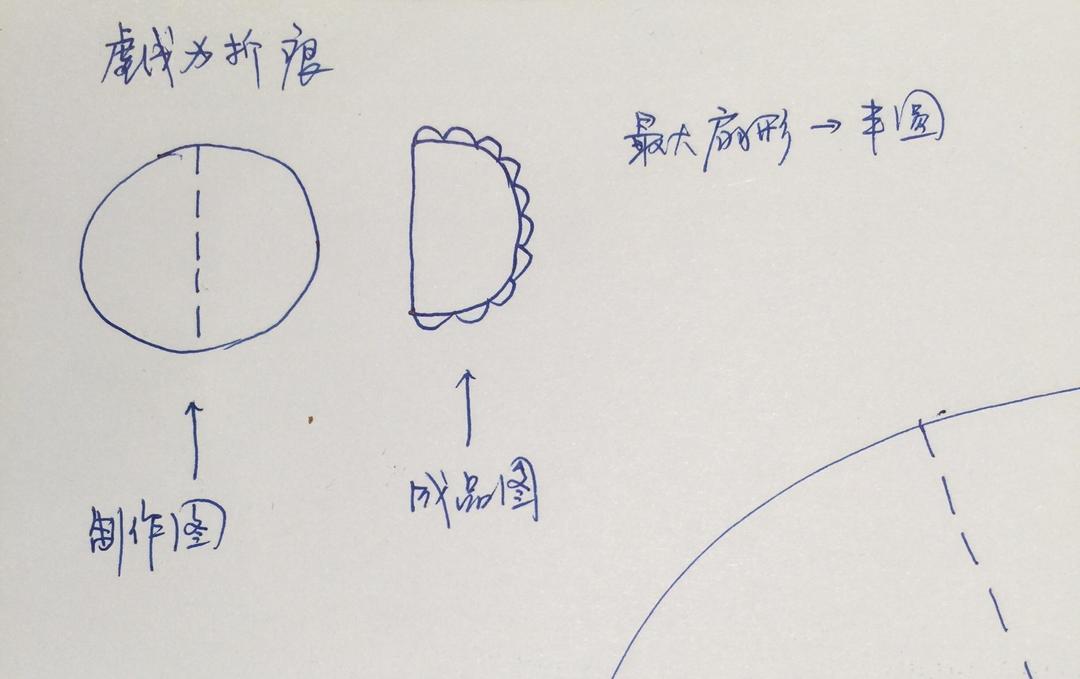 虚线为折痕
最大扇形→半圆
制作图
成品图